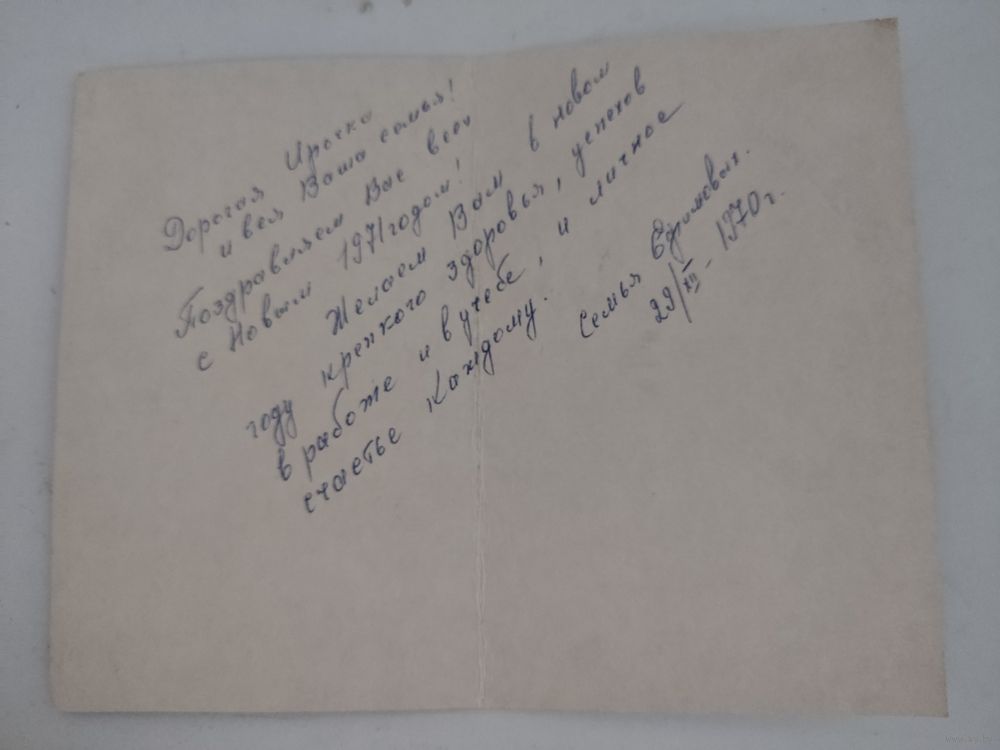 Дорогая Ирочка
и вся Ваша семья!
Поздравляем Вас всех
с Новым 1971годом!
Желаем Вам в новом
году крепкого здоровья, успехов
в работе и в учебе, и личное
счастье каждому.
Семья
29/XII - 1970 г.